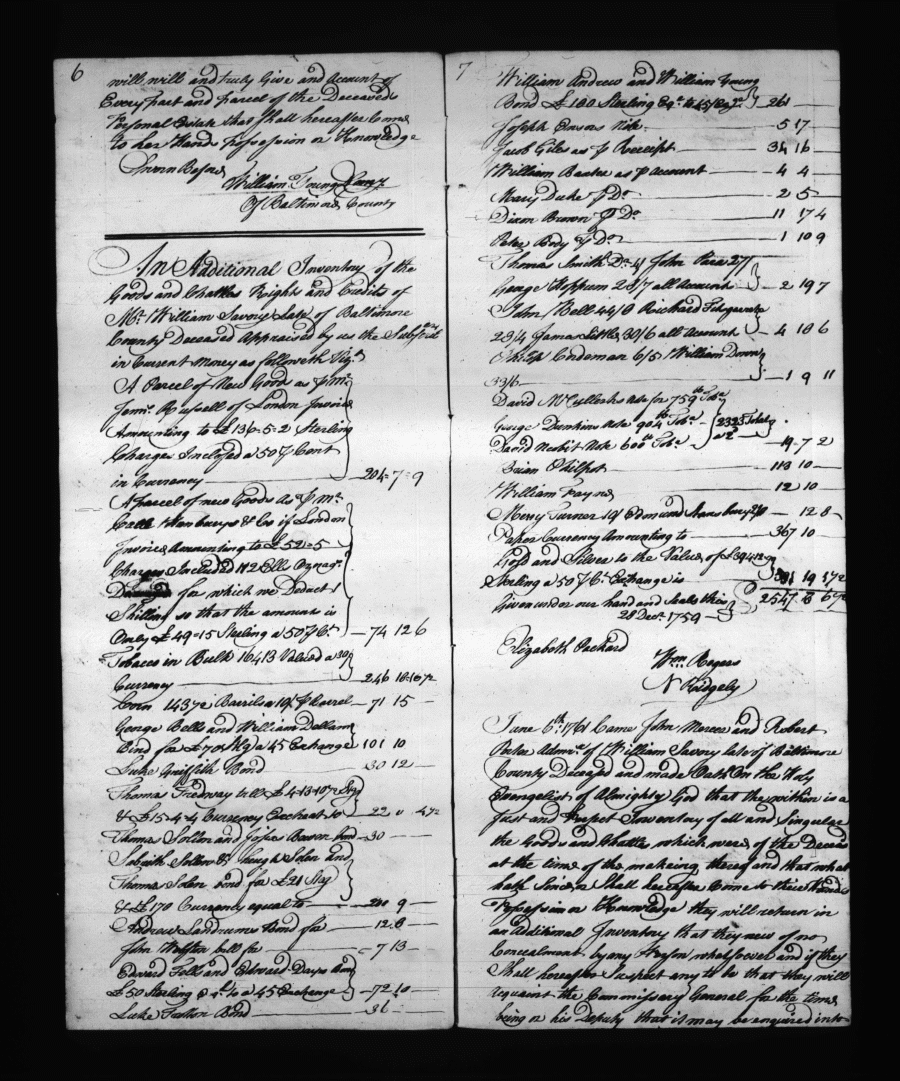 6
will well and truly Give and Account of
Every part and parcel of the Deceaseds
Personal Estate that shall hereafter Come
to her Hands possession or Knowledge
Sworn Before
William Young
Of Baltimore County
An Additional Inventory of the
Goods and Chattles Rights and Credits of
Mr. William Savory Late of Baltimore
County Deceased Appraised by us the
in Current Money as followeth Viz.
A Parcel of New Good as p Mr.
Russell of London Invoice
Amounting to £136-5-2 Sterling
Charges Inclosed a 50 p Cent
in Currency 204=7=9
A parcel of new Goods as p Mr.
Hanburys & Co of London
Invoice Amounting to £52=5
Charges Included 112 Ells
for which we Deduct 1
Shilling so that the amount is
Only £49=15 Sterling a 50 p Ct. 74 12 6
Tobacco in Bulk 16413 Valued a 30/
Currency 246
Corn Barrils a 10/ p Barrel 71 15
George Bells and William Dallam
Bond for £70 Stg a 45 Exchange 101 10
Luke Griffith Bond 30 12
Thomas Tredway bill
& £15=4=4 Currency
Thomas Sollon and Bowen bond 30
and
Thomas bond for £21 Stg
& £170 Currency equal to 9
Andrew Landrums Bond for 12 8
John bill for 7 13
Edward Fell and Edward Days Bond
£50 Sterling to a 45 Exchange 72 10
Luke Bond 36
7
William Andrew and William Young
Bond £180 Sterling 261
Joseph Ensors Note 5 17
Jacob Giles as p Receipt 34 16
William Baxter as p account 4 4
Mary Duke p Do. 2 5
Dixon Brown p Do. 11 17 4
Peter Body p Do. 1 10 9
Thomas Smith Do. John
George all Account 2 19 7
John Bell 44/8 Richard
23/4 James Little 30/6 all Account 4 18 6
Philip 6/5 William
33/6 1 9 11
David McCullochs Note for 759 lb Toba.
George Note 904 lb Toba. 2323
David Nesbit Note 600 lb Toba. 19=7=2
Brian Philpot 113 10
William 12 10
Mercy Turner 10/ Edmund Stansbury 12 8
Paper Currency Amounting to 367 10
Gold and Silver to the Value of
Sterling a 50 p Ct. Exchange is
Given under our hand and Seals this 2547
28 Decr. 1759
Elizabeth
Wm Rogers
N Ridgely
June 6th 1761 Came John Mercer and Robert
Peter Admrs. of William Savory late of Baltimore
County Deceased and made Oath On the Holy
Evangelist of Almighty God that the within is a
Just and Perfect Inventory of all and Singular
the Goods and Chattles which were of the Deceased
at the time of the making thereof and that what
hath Since or Shall hereafter Come to their Hands
Possession or Knowledge they will return in
an additional Inventory that they now of no
Concealment by any Person whatsoever and if they
Shall hereafter Suspect any to be that they will
acquaint the Commissary General for the time
being or his Deputy that it may be enquired into